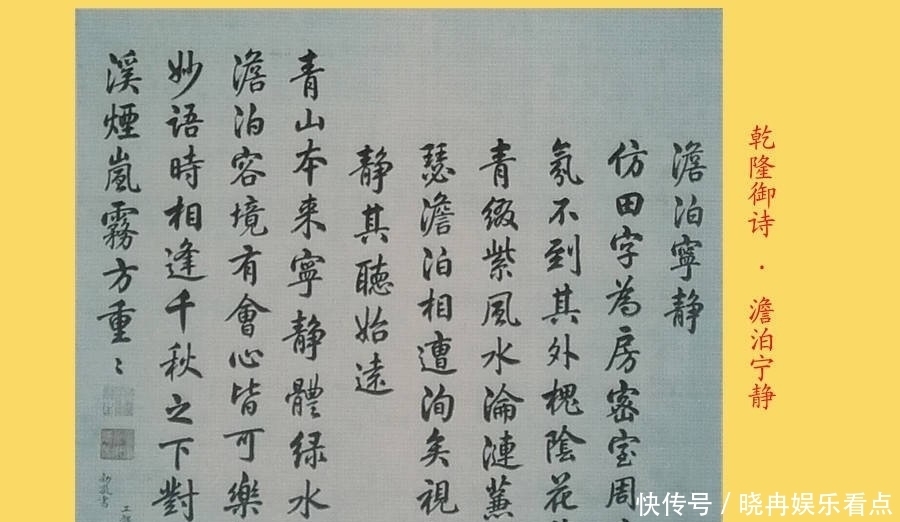 乾隆御诗 · 澹泊宁静
澹泊寧静
仿田字為房密室周
氛不到其外槐陰花
青綴紫風水淪漣蒹
瑟澹泊相遭洵矣視
静其聽始遠
青山本来寧静體緑水
澹泊容境有會心皆可樂
妙語時相逢千秋之下對
溪煙嵐霧方重〻
快传号 / 晓冉娱乐看点